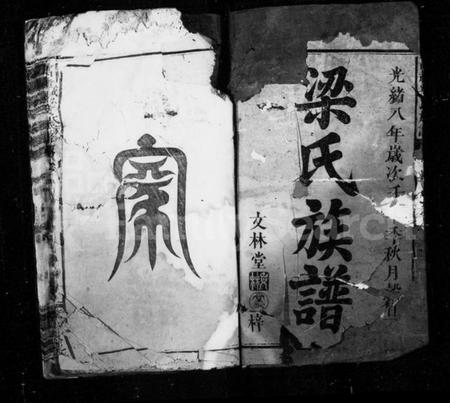 光緒八年歲次壬午季秋月
梁氏族譜
文林堂梓
宗